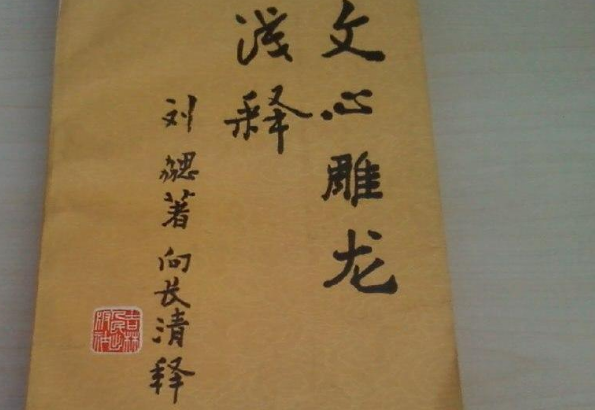 文心雕龙
浅释
刘勰著 向长清释
吉林人民出版社